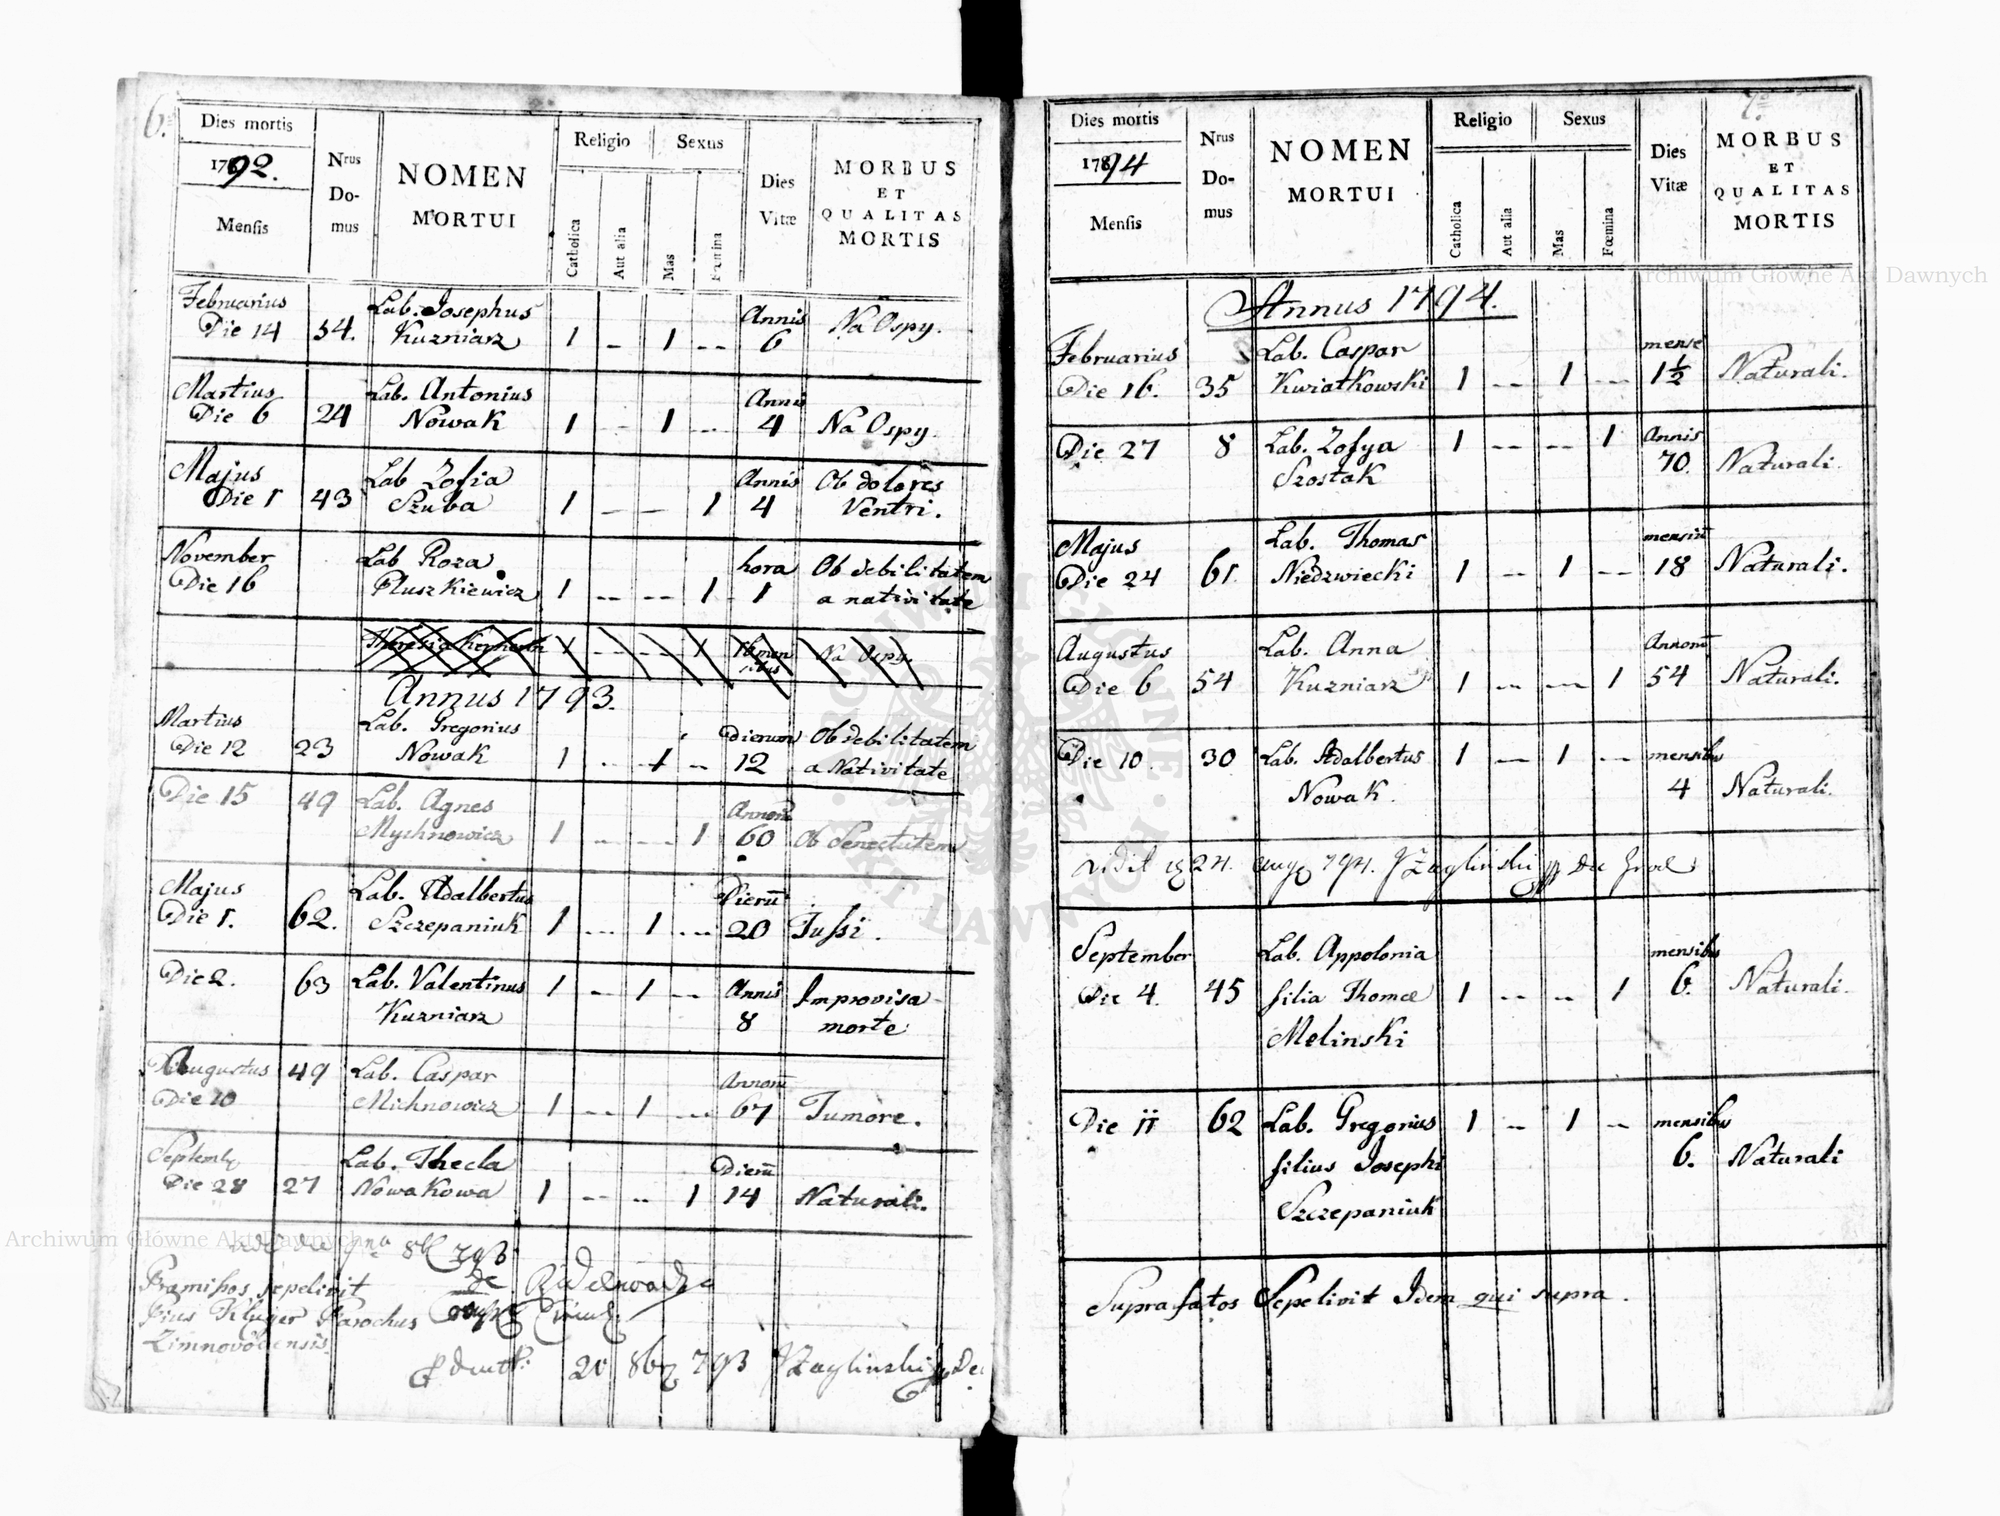 6.
Dies mortis
1792.
Mensis
Nrus
Do-
mus
NOMEN
MORTUI
Religio
Sexus
Catholica
Aut alia
Mas
Fœmina
Dies
Vitæ
MORBUS
ET
QUALITAS
MORTIS
Februarius Lab. Josephus Annis
Die 14 54. Kuzniarz 1 - 1 -- 6 Na Ospy.
Martius Lab. Antonius Annis
Die 6 24 Nowak 1 -- 1 -- 4 Na Ospy.
Majus Lab Zofia Annis Ob dolores
Die 1 43 Szuba 1 -- -- 1 4 Ventri.
November Lab Roza hora Ob debilitatem
Die 16 Pluszkiewicz 1 -- -- 1 1 a nativitate
Theresia 1 -- -- 1 Na Ospy.
Annus 1793.
Martius Lab. Gregorius Dierum Ob debilitatem
Die 12 23 Nowak 1 -- 1 -- 12 a Nativitate
Die 15 49 Lab. Agnes Annorū
Mychnowicz 1 -- -- 1 60 Ob Senectutem
Majus Lab. Adalbertus Dierū
Die 1. 62. Szczepaniuk 1 -- 1 -- 20 Tussi.
Die 2. 63 Lab. Valentinus 1 -- 1 -- Annis Improvisa
Kuzniarz 8 morte
Augustus 49 Lab. Caspar Annorū
Die 20 Michnowicz 1 -- 1 -- 67 Tumore.
Septemb Lab. Thecla Dierū
Die 28 27 Nowakowa 1 -- -- 1 14 Naturali.
Præmissos sepelivit
Pius Kluger Parochus
Zimnovodensis
20 8br 793 Zaglinski
7
Dies mortis
1794
Mensis
Nrus
Do-
mus
NOMEN
MORTUI
Religio
Sexus
Catholica
Aut alia
Mas
Fœmina
Dies
Vitæ
MORBUS
ET
QUALITAS
MORTIS
Annus 1794.
Februarius Lab. Caspar mense
Die 16. 35 Kwiatkowski 1 -- 1 -- 1½ Naturali.
Die 27 8 Lab. Zofya 1 -- -- 1 Annis
Szostak 70. Naturali.
Majus Lab. Thomas mensiū
Die 24 61. Niedzwiecki 1 -- 1 -- 18 Naturali.
Augustus Lab. Anna Annorū
Die 6 54 Kuzniarz 1 -- -- 1 54 Naturali.
Die 10. 30 Lab. Adalbertus 1 -- 1 -- mensibus
Nowak. 4 Naturali.
vidit 24. aug 794. Zaglinski
September Lab. Appolonia mensibus
Die 4. 45 filia Thomæ 1 -- -- 1 6. Naturali.
Melinski
Die ii 62 Lab. Gregorius 1 -- 1 -- mensibus
filius Josephi 6. Naturali
Szczepaniuk
Supra fatos Sepelivit Idem qui supra.
Archiwum Główne Akt Dawnych
Archiwum Główne Akt Dawnych
ARCHIWUM GŁÓWNE AKT DAWNYCH